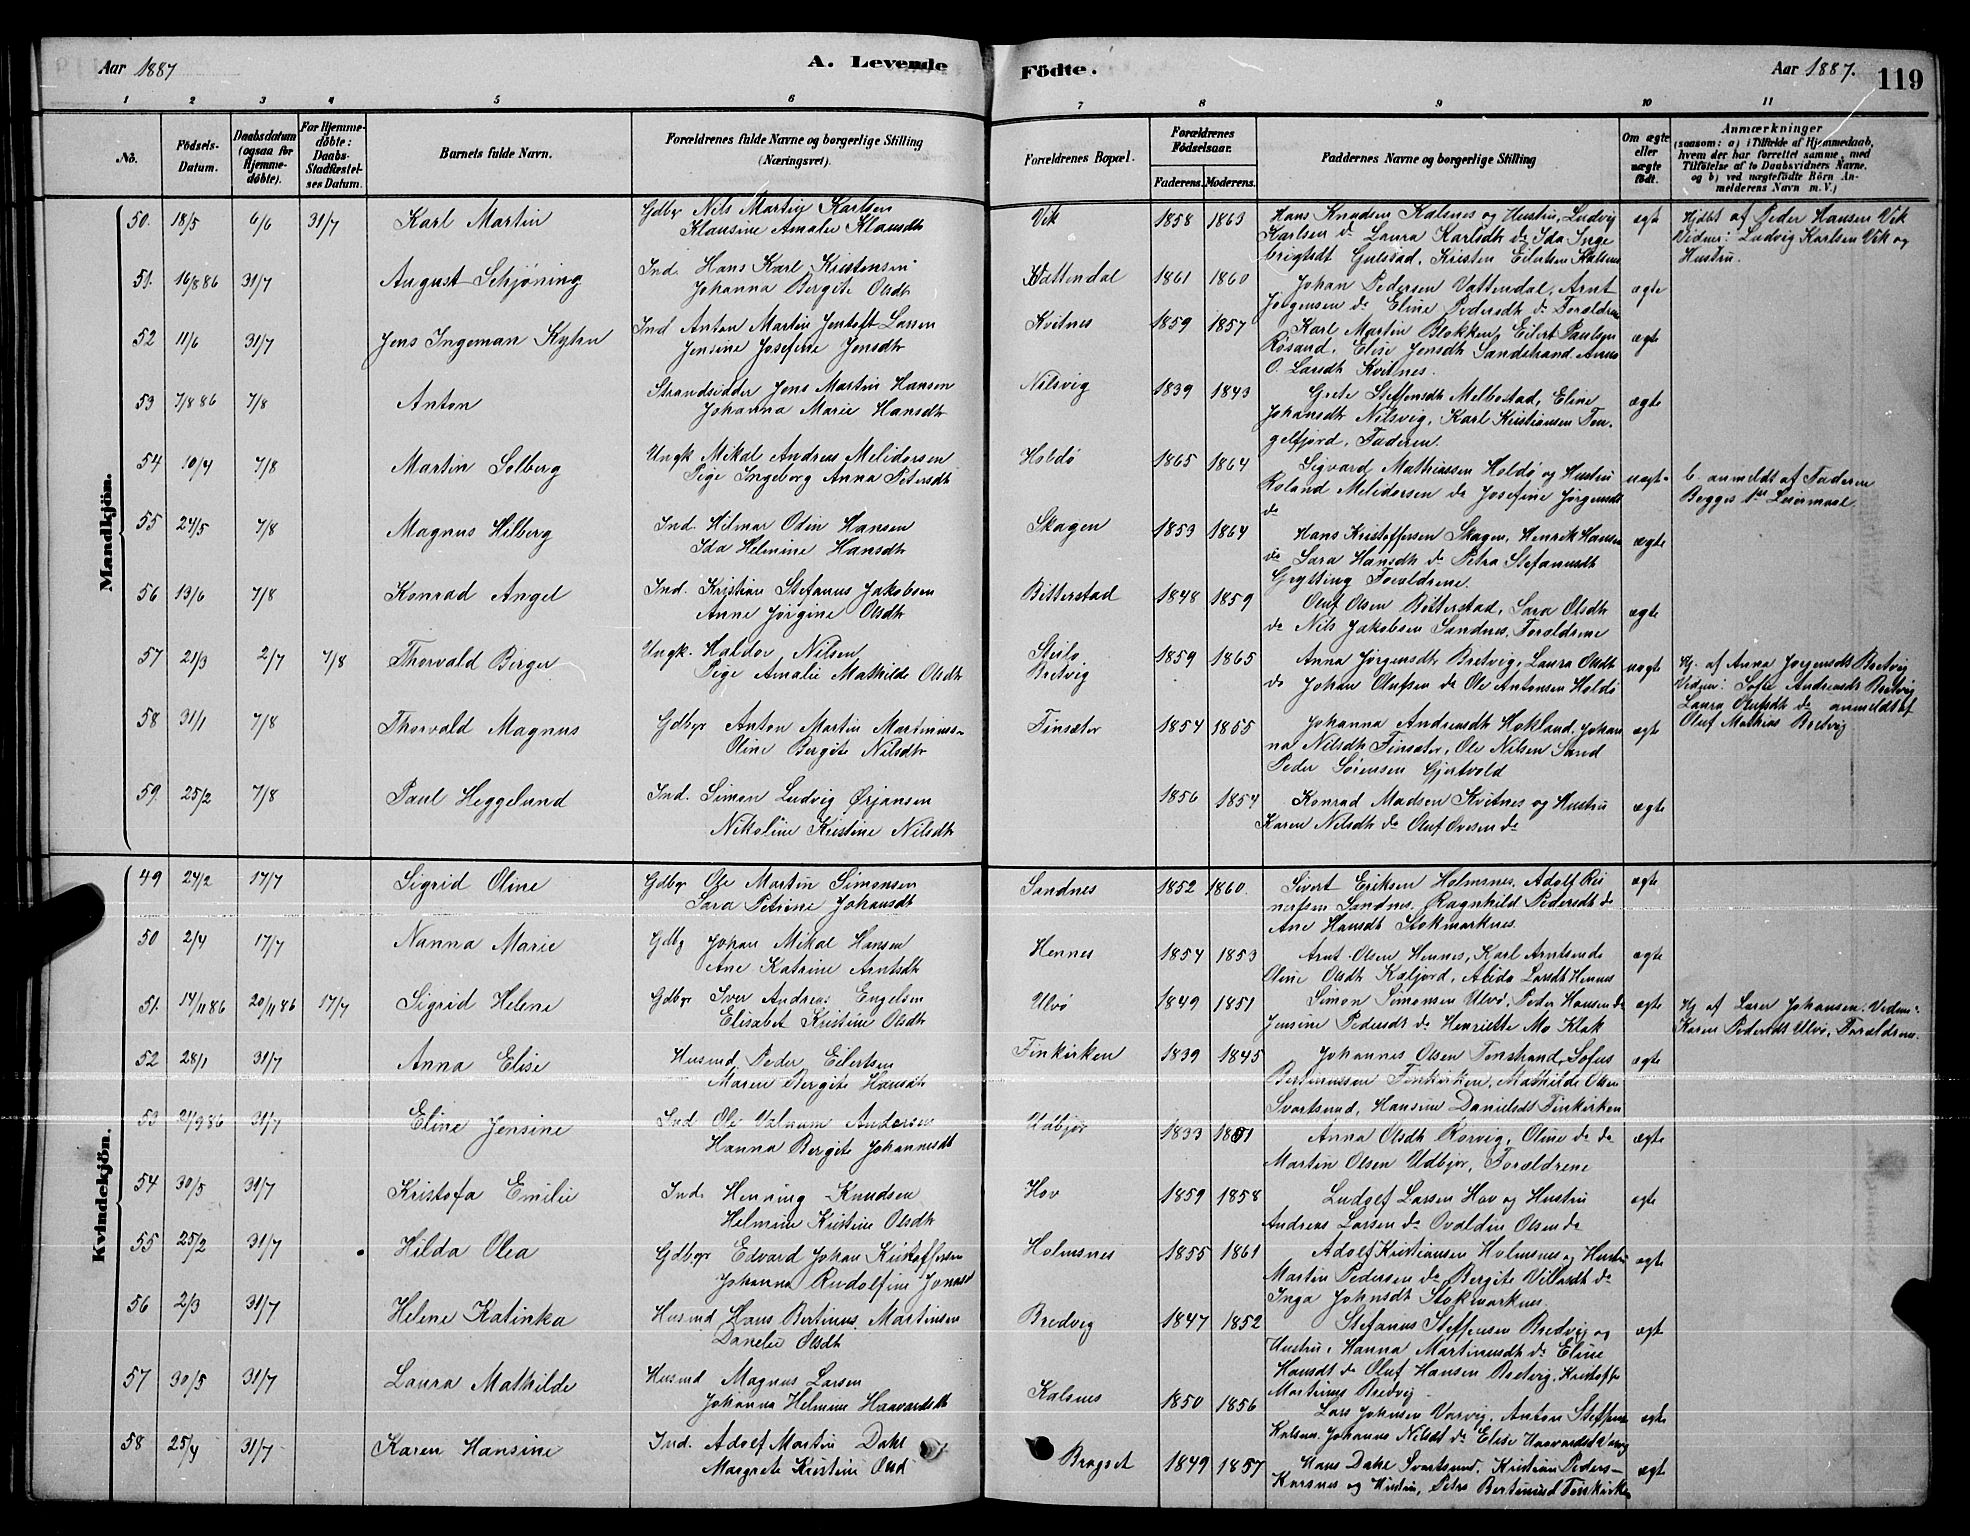 Aar 1887
A. Levende
Födte.
Aar 1887.
119
1 2 3 4 5 6 7 8 9 10 11
No.
Födsels-
Datum.
Daabsdatum
(ogsaa for
Hjemme-
döbte).
For Hjemme-
döbte:
Daabs-
Stadfæstel-
ses Datum.
Barnets fulde Navn.
Forældrenes fulde Navne og borgerlige Stilling
(Næringsvei).
Forældrenes Bopæl.
Forældrenes
Födselsaar.
Faderens. Moderens.
Faddernes Navne og borgerlige Stilling
Om ægte
eller
uægte
födt.
Anmærkninger
(saasom: a) i Tilfælde af Hjemmedaab,
hvem der har forrettet samme, med
Tilföielse af to Daabsvidners Navne.
og b) ved uægtefödte Börn An-
melderens Navn m. V.)
Mandkjön.
50. 18/5 6/6 31/7 Karl Martin Gdbr Nils Martin Karlsen
Klausine Amalie Klausdtr
Vik 1858 1863 Hans Knudsen Kalsnes og Hustru, Ludvig
Karlsen do Laura Karlsdtr do Ida Inge
brigtsdt Eilertsen
ægte
Hjdbt af Peder Hansen Vik
Vidner: Ludvig Karlsen Vik og
Hustru.
51. 16/8 86 31/7 August Schjöning Ind. Hans Karl Kristensen
Johanna Bergite Olsdtr
Vattendal 1861 1860 Johan Pedersen Vattendal, Arnt
Jørgensen do Eline Pedersdtr do Forældrene
ægte
52 11/6 31/7 Jens Ingeman Kyhn Ind Anton Martin Jentoft Larsen
Jensine Josefine Jensdtr
Kvitnes 1859 1857 Karl Martin Blokken, Eilert Paulsen
Røsand, Elise Jensdtr Sandstrand, Anne
O. Larsdtr Kvitnes.
ægte
53 7/8 86 7/8 Anton Strandsidder Jens Martin Hansen
Johanna Marie Hansdtr
Nilsvig 1839 1843 Grete Steffensdtr Melbostad, Eline
Johansdtr Nilsvig, Karl Kristiansen Ten-
gelfjord, Faderen.
ægte
54 10/4 7/8 Martin Solberg Ungk Mikal Andreas Melidorsen
Pige Ingeborg Anna Petersdtr
Holdø 1865 1864 Sigvard Mathiassen Holdø og Hustru
Roland Melidorsen do Josefine Jørgensdtr
do
uægte
b. anmeldt af Faderen
Begges 1ste Leiermaal.
55 24/5 7/8 Magnus Hilberg Ind. Hilmar Odin Hansen
Ida Helmine Hansdtr
Skagen 1853 1864 Hans Kristoffersen Skagen, Henrik Hansen
do Sara Hansdtr do Petra Stefanusdtr
Forældrene.
ægte
56 13/6 7/8 Konrad Angel Ind. Kristian Stefanus Jakobsen
Anne Jørgine Olsdtr
Bitterstad 1848 1859 Oluf Olsen Bitterstad, Sara Olsdtr
do Nils Jakobsen Sandnes, Forældrene
ægte
57 21/3 2/7 7/8 Thorvald Berger Ungk. Haldor Nilsen
Pige Amalie Mathilde Olsdtr
Steilo
Bretvig
1859 1865 Anna Jørgensdtr Bretvig, Laura Olsdtr
do Johan Olufsen do Ole Antonsen Holdø
uægte
Hj. af Anna Jørgensdt Bretvig
Vidner: Sofie Andreasdt Bretvig
Laura Olufsdt do anmeldt af
Oluf Mathias Bretvig
58 31/1 7/8 Thorvald Magnus Gdbr Anton Martin Martinuss-
Oline Bergite Nilsdtr
Finsæter 1854 1855 Johanna Andreasdtr Hokland, Johan
na Nilsdtr Finsæter, Ole Nilsen Sand
Peder Sørensen Gjertvold
ægte
59. 25/2 7/8 Paul Heggelund Ind. Simon Ludvig Ørjansen
Nikoline Kristine Nilsdtr
1856 1854 Konrad Madsen Kvitnes og Hustru
Karen Nilsdtr do Oluf Ovesen do
ægte
Kvindekjön.
49 24/2 17/7 Sigrid Oline Gdbr Ole Martin Simonsen
Sara Petrine Johansdt
Sandnes 1852 1860. Sivert Eriksen Holmsnes, Adolf Rei
nertsen Sandnes, Ragnhild Pedersdt do
Ane Hansdt Stokmarknes.
ægte
50 2/4 17/7 Nanna Marie Gdbr Johan Mikal Hansen
Ane Katrine Arntsdtr
Hennes 1854 1853 Arnt Olsen Hennes, Karl Arntsen do
Oline Olsdt Kaljord, Larsdt Hennes
ægte
51. 14/11 86 20/11 86 17/7 Sigrid Helene Gdbr Iver Andreas Engelsen
Elisabet Kristine Olsdtr
Ulvø 1849 1851 Simon Simonsen Ulvø, Peder Hansen do
Jensine Pedersdt do Henriette Mo Klak
ægte
Hj af Johansen. Vidner:
Karen Pedersdt Ulvø, Forældrene.
52 28/1 31/7 Anna Elise Husmd Peder Eilertsen
Maren Bergite Hansdtr
Finkirken 1839 1845 Johannes Olsen Tenstrand, Sofus
Bertinussen Finkirken, Mathilde Olsen
Svartsund, Hansine Danielsdt Finkirken
ægte
53 21/9 86 31/7 Eline Jensine Ind Ole Valnum Andersen
Hanna Bergite Johannesdt
Udbjør 1833 1851 Anna Olsdtr Rørvig, Oline do do
Martin Olsen Udbjør, Forældrene
ægte
54 30/5 31/7 Kristofa Emilie Ind. Henning Knudsen
Helmine Kristine Olsdtr
Hov 1859 1858 Ludolf Larsen Hov og Hustru
Andreas Larsen do Ovaldin Olsen do
ægte
55 25/2 31/7 Hilda Olea Gdbgr Edvard Johan Kristoffersen
Johanna Rudolfine Jonasd
Holmsnes 1855 1861 Adolf Kristiansen Holmsnes og Hustru
Martin Pedersen do Bergite Villasdt do
Inga Johnsdt Stokmarknes
ægte
56 2/3 31/7 Helene Katinka Husmd Hans Bertinus Martinsen
Danelie Olsdt
Bredvig 1847 1852 Stefanus Steffensen Bredvig og
Hustru, Hanna Martinusdt do Eline
Hansdt do Oluf Hansen Bretvig, Kristoffer
Martinus Bredvig
ægte
57 30/5 31/7 Laura Mathilde Husmd Magnus Larsen
Johanna Helmine Haavardsdt
Kalsnes 1850 1856 Lars Johnsen Varvig, Anton Steffens
Kalsnes, Johanna Nilsdt do Elise Haavardsdt Varvig
ægte
58 25/4 31/7 Karen Hansine Ind. Adolf Martin Dahl
Margrete Kristine Olsd
Brogset 1849 1857 Hans Dahl Svartsund, Kristian Peders-
Karsnes og Hustru, Petra Bertinusd Finkirken
ægte